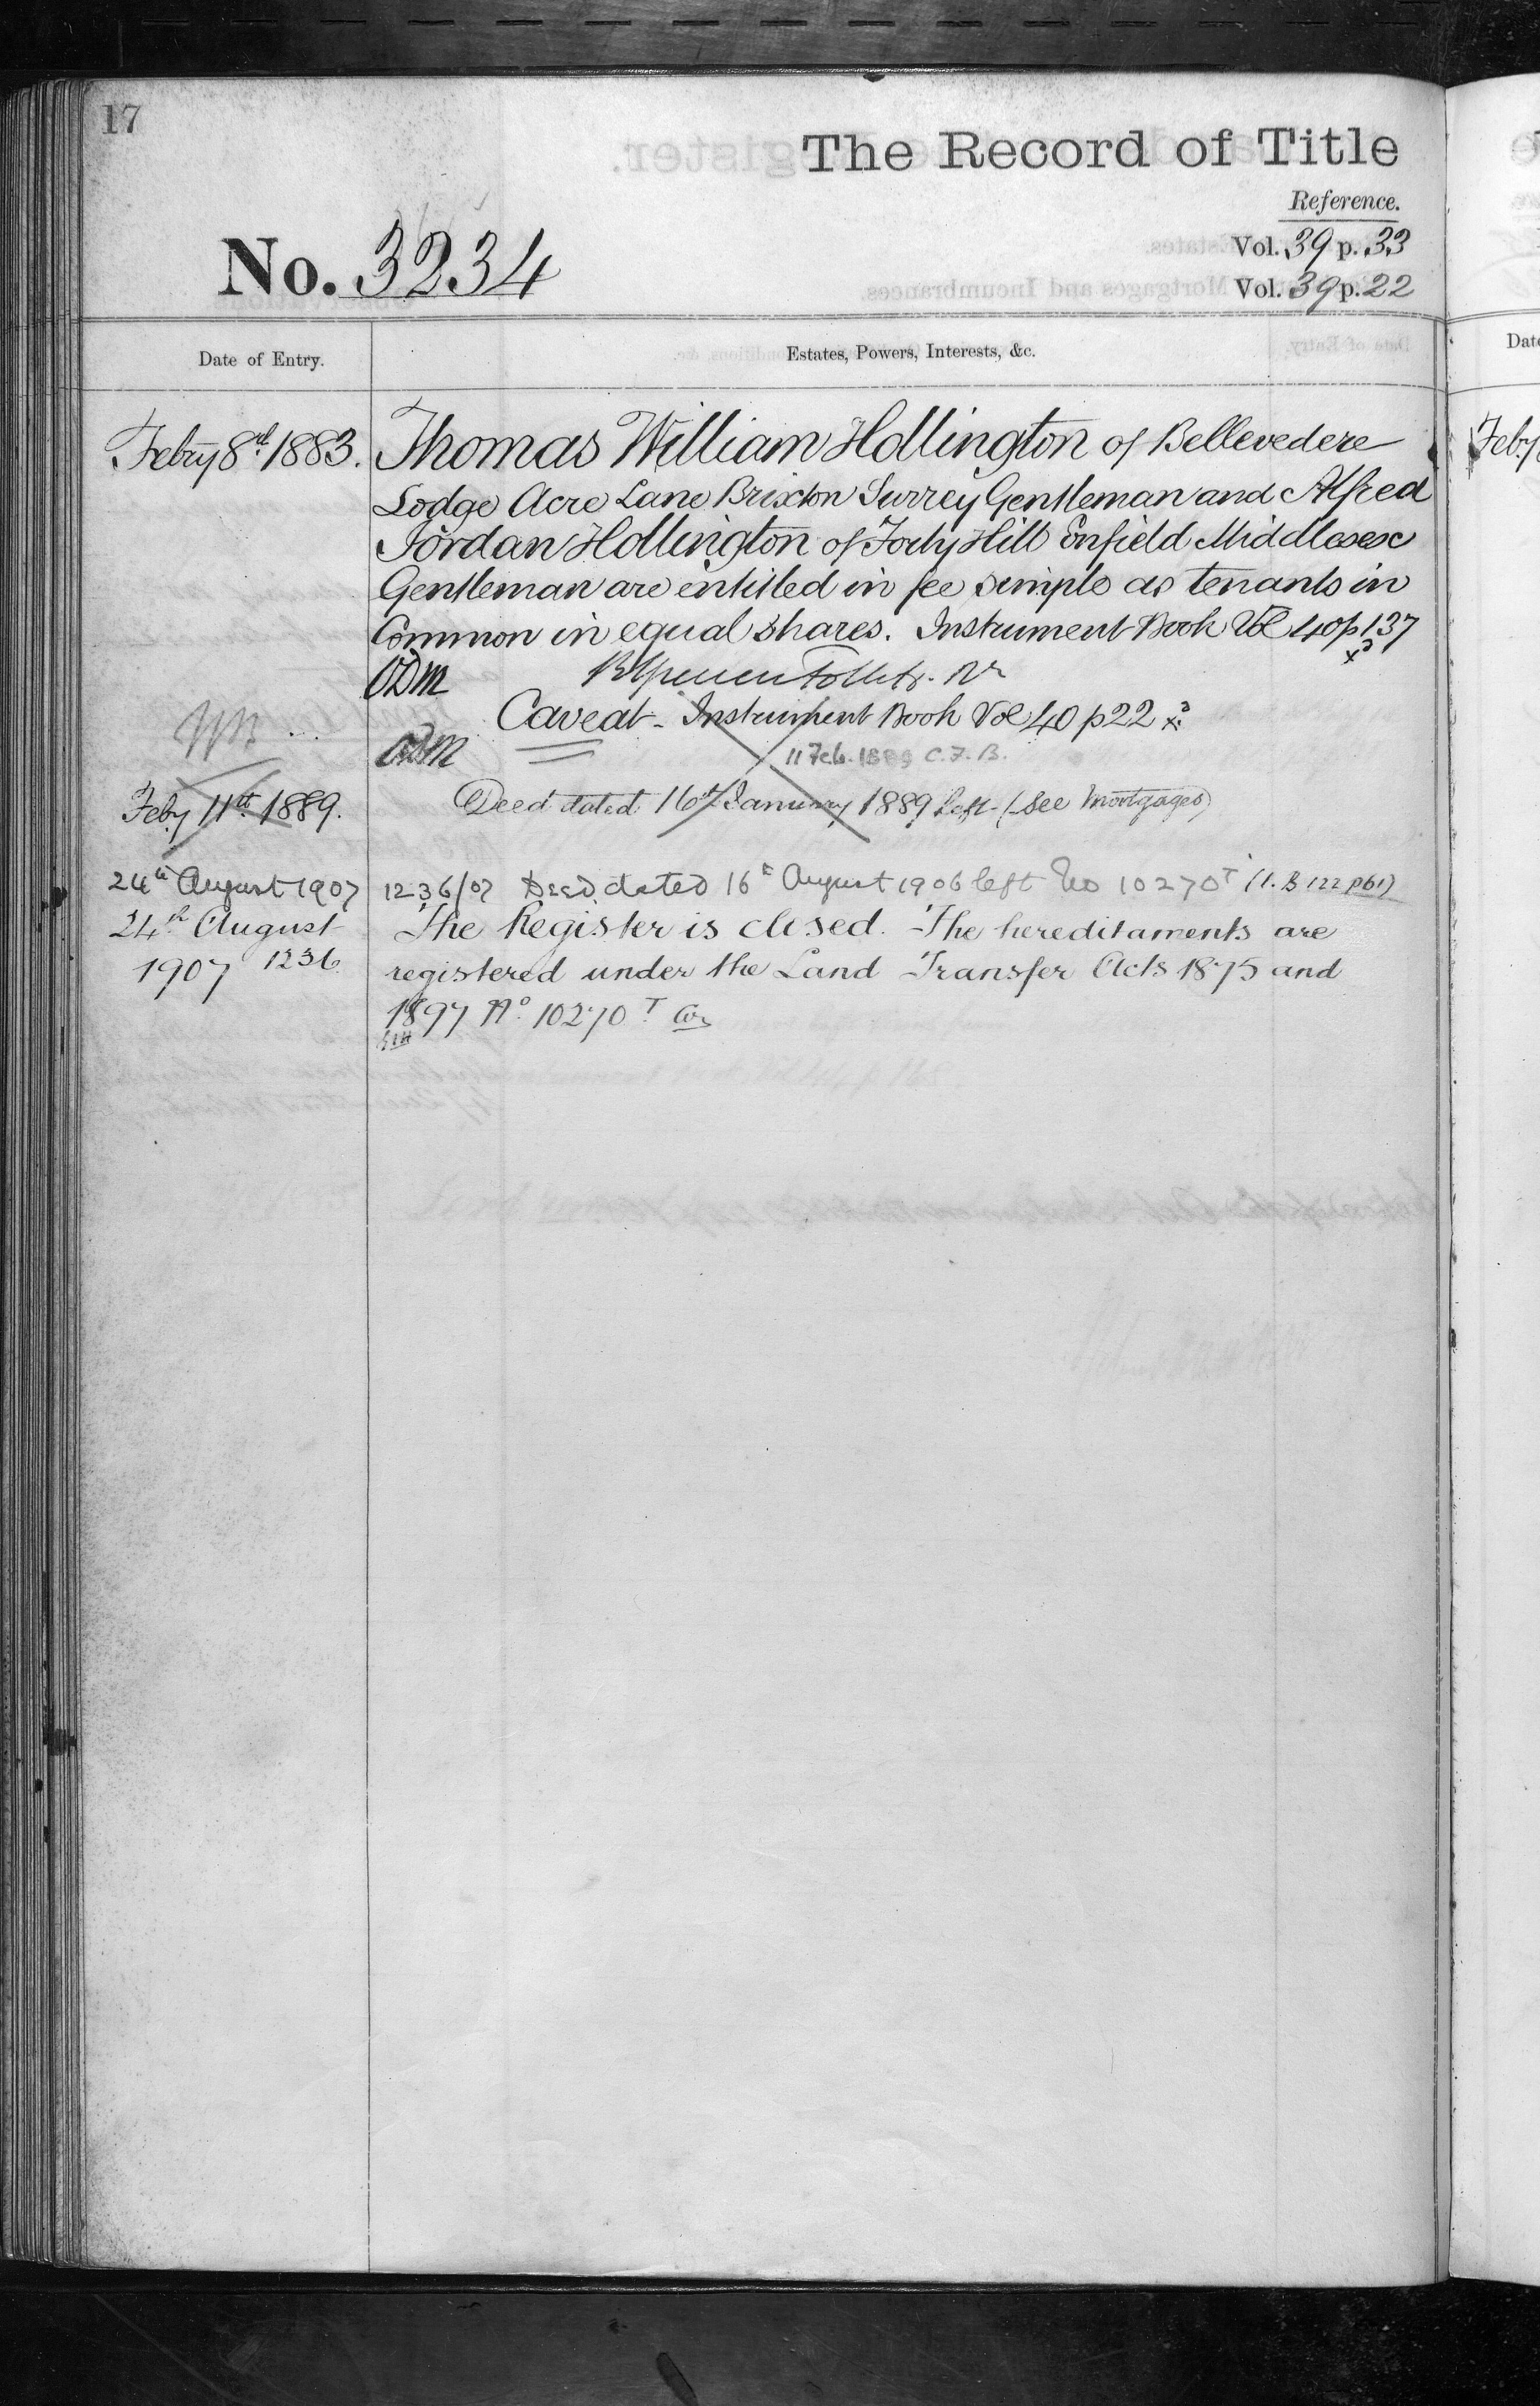 17
The Record of Title
Reference.
No. 3234
Vol. 39 p. 33
Vol. 39 p. 22
Date of Entry.
Estates, Powers, Interests, &c.
Febry 8th 1883. Thomas William Hollington of Bellevedere
Lodge Acre Lane Brixton Surrey Gentleman and Alfred
Jordan Hollington of Forty Hill Enfield Middlesex
Gentleman are entitled in fee simple as tenants in
Common in equal shares. Instrument Book Vol 40 p 137
ODM
Caveat - Instrument Book Vol 40 p 22
ODM 11 Feb. 1889 C.F.B.
Feby 11th 1889. Deed dated 16th January 1889 left (see Mortgages)
24th August 1907 1236/07 Deed dated 16th August 1906 left No 10270T (I.B 122 p 61)
24th August The Register is closed. The hereditaments are
1907 1236 registered under the Land Transfer Acts 1875 and
1897 No. 10270 T
Date
Feby